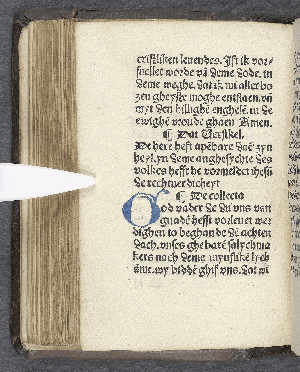 cristliken leuendes. Ist ik vor-
snellet worde vā deme dode, in
deme weghe, dat ik mi aller bo
zen gheyste moghe entslaen, vñ
myt den hillighē enghelē, in de
ewighē vroude ghaen Amen.
¶ Dat Versikel.
De here heft apēbare daē zyn
heyl, yn deme anghesychte des
volkes hefft he vormeldet ihesū
de rechtuerdicheyt
¶ De collecta
God vader de du vns van
gnadē hefst vorlenet wer
dighen to beghande dē achten
dach, vnses ghebarē salychma
kers nach deme mynslikē lych
āme, wy biddē ghif vns, dat wi